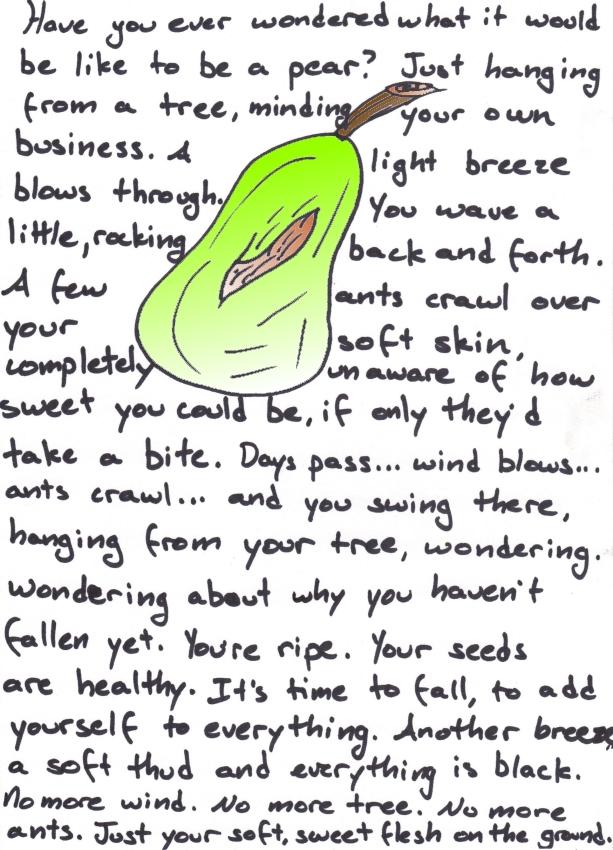 Have you ever wondered what it would
be like to be a pear? Just hanging
from a tree, minding your own
business. A light breeze
blows through. You wave a
little, rocking back and forth.
A few ants crawl over
your soft skin,
completely unaware of how
sweet you could be, if only they'd
take a bite. Days pass... wind blows...
ants crawl... and you swing there,
hanging from your tree, wondering.
wondering about why you haven't
fallen yet. You're ripe. Your seeds
are healthy. It's time to fall, to add
yourself to everything. Another breeze,
a soft thud and everything is black.
No more wind. No more tree. No more
ants. Just your soft, sweet flesh on the ground.